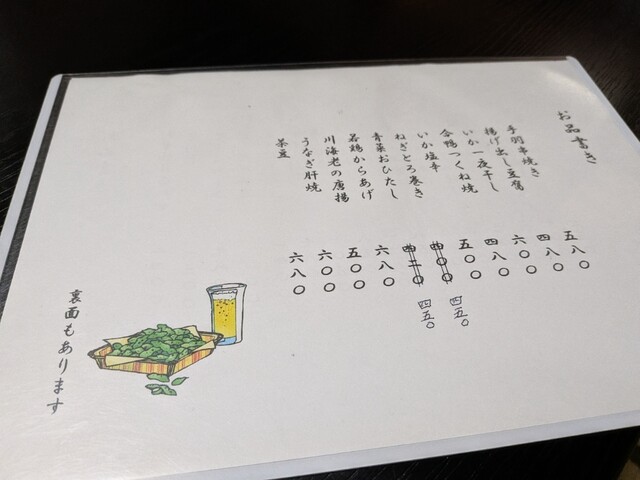 お品書き
手羽串焼き 五八〇
揚げ出し豆腐 四八〇
いか一夜干し 六〇〇
合鴨つくね焼 四八〇
いか塩辛 五〇〇
ねぎとろ巻き 四五〇
青菜おひたし 四五〇
若鶏からあげ 六八〇
川海老の唐揚 五〇〇
うなぎ肝焼 六〇〇
茶豆 六八〇
裏面もあります